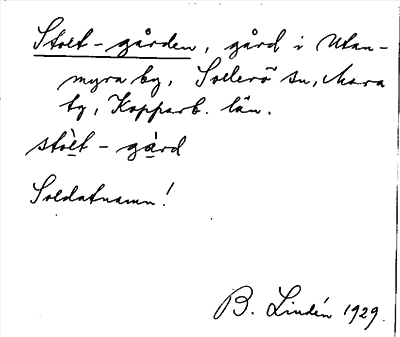 Stolt-gården, gård i Utan-
myra by, Sollerö sn, Mora
tg, Kopparb. län.
stòlt - gård
Soldatnamn!
B. Lindén 1929.